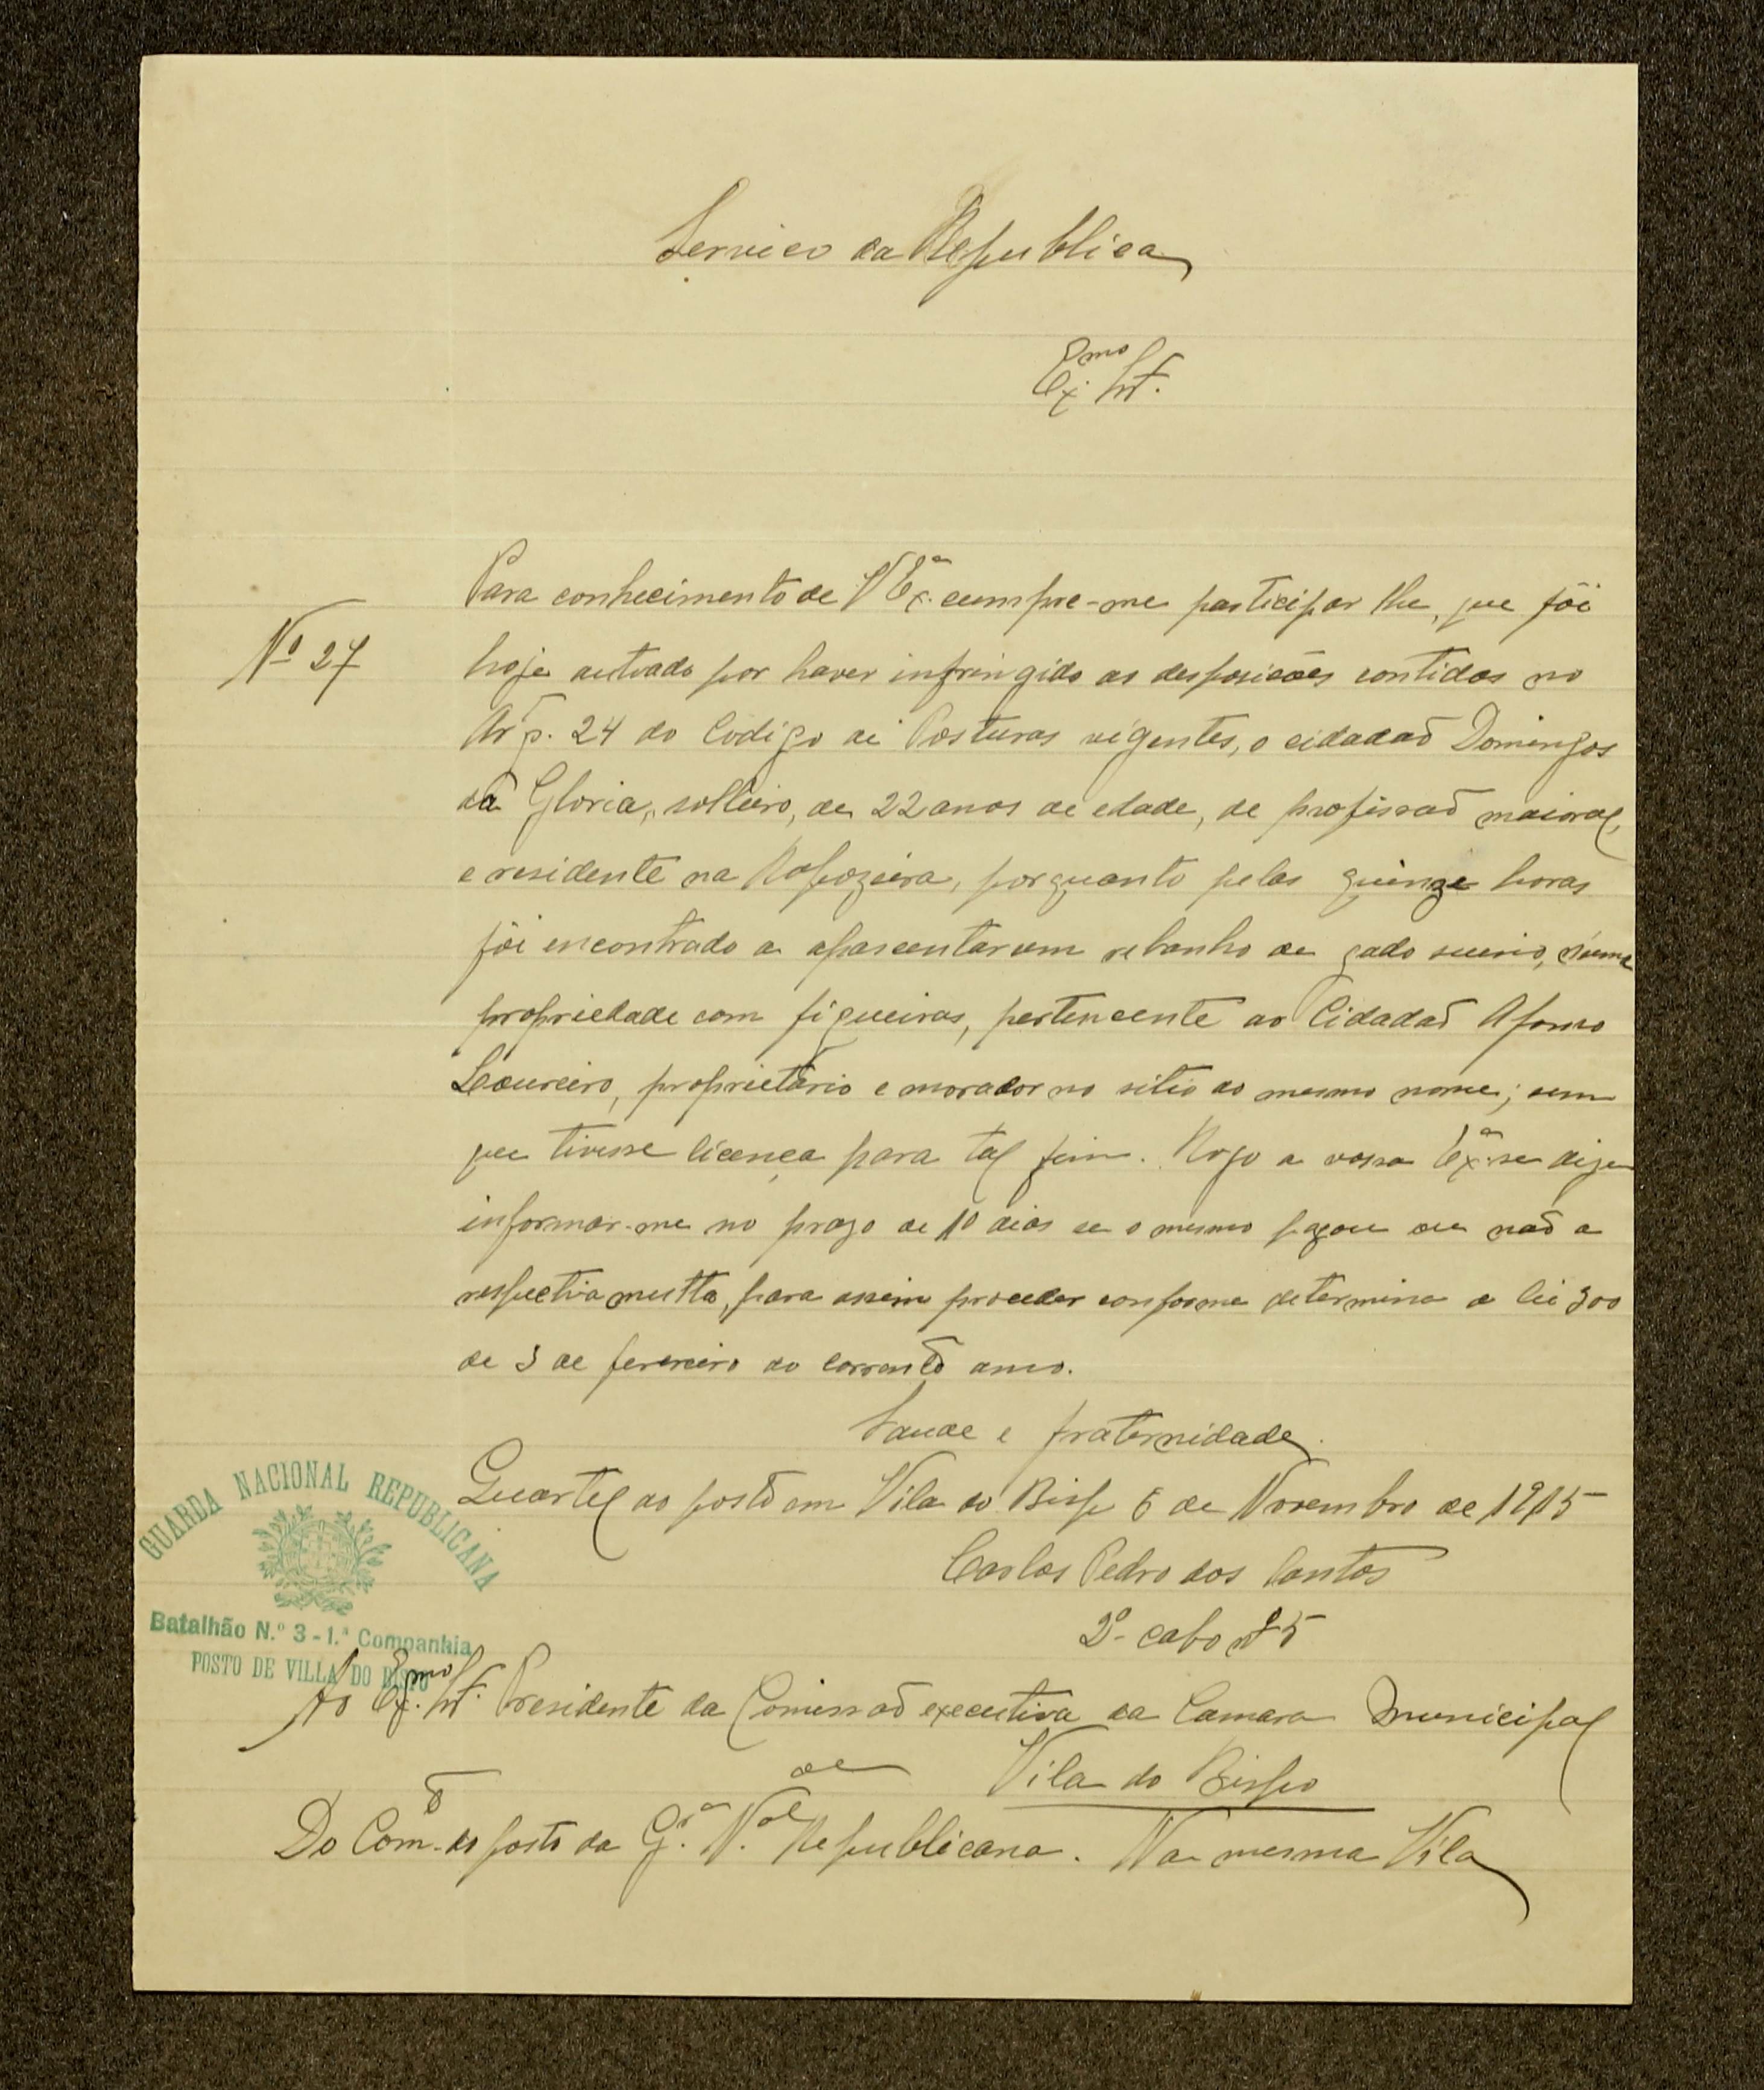 Servico da Republica
Exmo Snr.
Nº 27
Para conhecimento de V Exª cumpre-me participar lhe, que fôi
hoje autuado por haver infringido as desposicões contidas no
Art.º 24 do Codigo de Posturas vigentes, o cidadaõ Domingos
da Gloria, solteiro, de 22 anos de edade, de profissaõ maioral,
e residente na Rapozeira, porquanto pelas quinze horas
fôi encontrado a apascentar um rebanho de gado suino, numa
propriedade com figueiras, pertencente ao Cidadaõ Afonso
Loureiro, proprietário e morador no sitio do mesmo nome; sem
que tivesse licença para tal fim. Rogo a vossa Exª se digne
informar-me no prazo de 10 dias se o mesmo pagou ou naõ a
respectiva multa, para assim proceder conforme determina a lei 300
de 3 de fevereiro do corrente anno.
Saude e fraternidade.
Quartel do posto em Vila do Bispo 6 de Novembro de 1915
Carlos Pedro dos Santos
2º cabo nº 5
GUARDA NACIONAL REPUBLICANA
Batalhão N.º 3 - 1.ª Companhia
POSTO DE VILLA DO BISPO
Ao Exmo Snr. Presidente da Comissaõ executiva da Camara Municipal
de Vila do Bispo
Do Comº do posto da Gª. Nal Republicana. Na mesma Vila